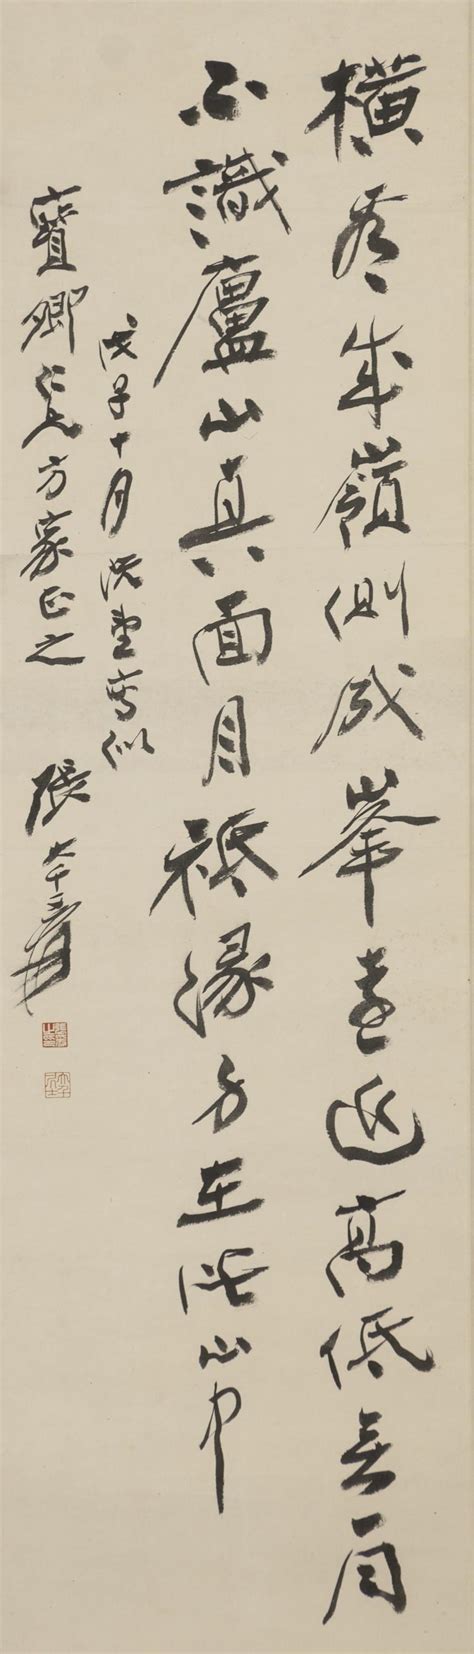 橫看成嶺側成峯遠近高低無一同
不識廬山真面目祇緣身在此山中
戊子十月堂寫似
卿仁兄方家正之 張大千爰